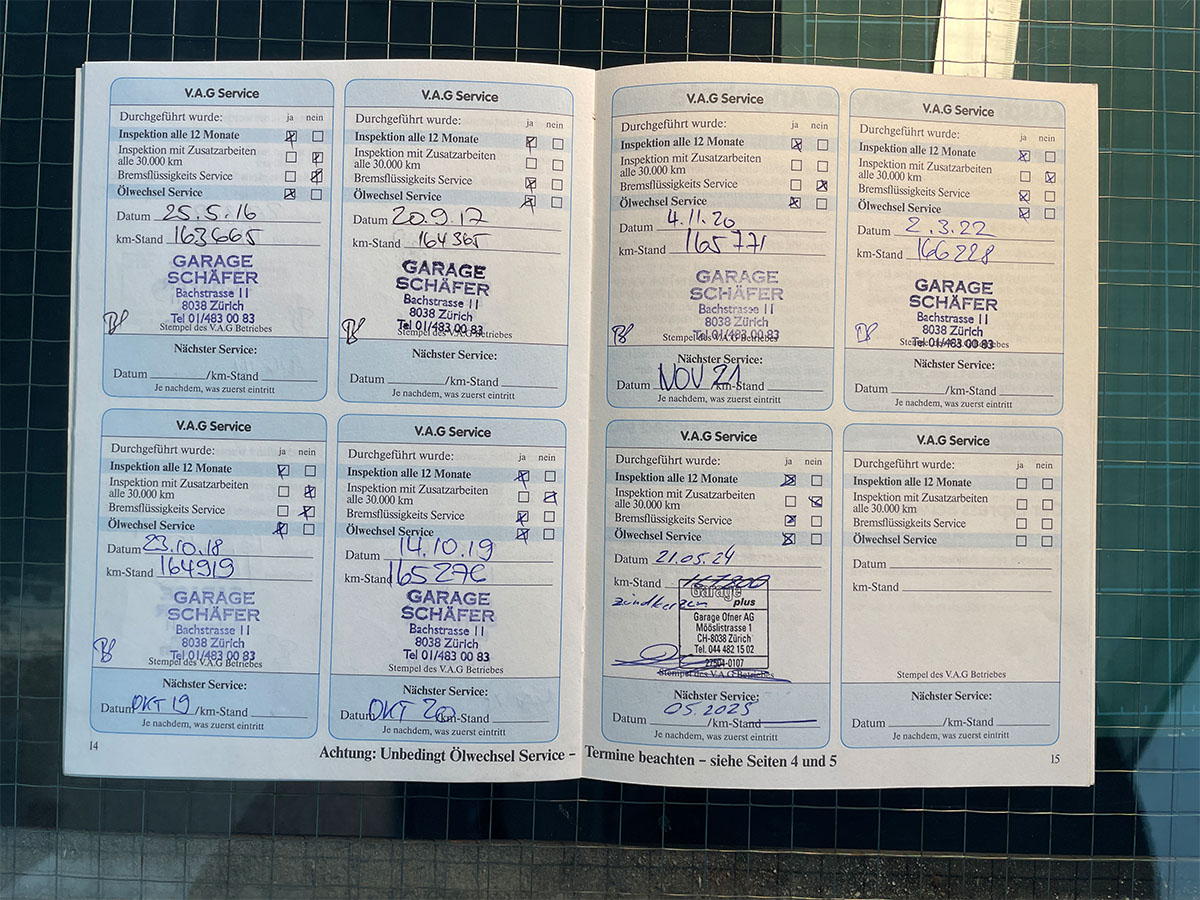 V.A.G Service
Durchgeführt wurde: ja nein
Inspektion alle 12 Monate
Inspektion mit Zusatzarbeiten
alle 30.000 km
Bremsflüssigkeits Service
Ölwechsel Service
Datum 25.5.16
km-Stand 163665
GARAGE
SCHÄFER
Bachstrasse 11
8038 Zürich
Tel 01/483 00 83
Stempel des V.A.G Betriebes
Nächster Service:
Datum /km-Stand
Je nachdem, was zuerst eintritt
V.A.G Service
Durchgeführt wurde: ja nein
Inspektion alle 12 Monate
Inspektion mit Zusatzarbeiten
alle 30.000 km
Bremsflüssigkeits Service
Ölwechsel Service
Datum 20.9.17
km-Stand 164365
GARAGE
SCHÄFER
Bachstrasse 11
8038 Zürich
Tel 01/483 00 83
Stempel des V.A.G Betriebes
Nächster Service:
Datum /km-Stand
Je nachdem, was zuerst eintritt
V.A.G Service
Durchgeführt wurde: ja nein
Inspektion alle 12 Monate
Inspektion mit Zusatzarbeiten
alle 30.000 km
Bremsflüssigkeits Service
Ölwechsel Service
Datum 23.10.18
km-Stand 164919
GARAGE
SCHÄFER
Bachstrasse 11
8038 Zürich
Tel 01/483 00 83
Stempel des V.A.G Betriebes
Nächster Service:
Datum OKT 19 /km-Stand
Je nachdem, was zuerst eintritt
V.A.G Service
Durchgeführt wurde: ja nein
Inspektion alle 12 Monate
Inspektion mit Zusatzarbeiten
alle 30.000 km
Bremsflüssigkeits Service
Ölwechsel Service
Datum 14.10.19
km-Stand 165276
GARAGE
SCHÄFER
Bachstrasse 11
8038 Zürich
Tel 01/483 00 83
Stempel des V.A.G Betriebes
Nächster Service:
Datum OKT 20 km-Stand
Je nachdem, was zuerst eintritt
14
V.A.G Service
Durchgeführt wurde: ja nein
Inspektion alle 12 Monate
Inspektion mit Zusatzarbeiten
alle 30.000 km
Bremsflüssigkeits Service
Ölwechsel Service
Datum 4.11.20
km-Stand 165771
GARAGE
SCHÄFER
Bachstrasse 11
8038 Zürich
Tel 01/483 00 83
Stempel des V.A.G Betriebes
Nächster Service:
Datum NOV 21 km-Stand
Je nachdem, was zuerst eintritt
V.A.G Service
Durchgeführt wurde: ja nein
Inspektion alle 12 Monate
Inspektion mit Zusatzarbeiten
alle 30.000 km
Bremsflüssigkeits Service
Ölwechsel Service
Datum 2.3.22
km-Stand 166228
GARAGE
SCHÄFER
Bachstrasse 11
8038 Zürich
Tel 01/483 00 83
Stempel des V.A.G Betriebes
Nächster Service:
Datum /km-Stand
Je nachdem, was zuerst eintritt
V.A.G Service
Durchgeführt wurde: ja nein
Inspektion alle 12 Monate
Inspektion mit Zusatzarbeiten
alle 30.000 km
Bremsflüssigkeits Service
Ölwechsel Service
Datum 21.05.24
km-Stand
Zündkerzen
Garage
plus
Garage Ofner AG
Mööslistrasse 1
CH-8038 Zürich
Tel. 044 482 15 02
27504-0107
Stempel des V.A.G Betriebes
Nächster Service:
05.2025
Datum /km-Stand
Je nachdem, was zuerst eintritt
V.A.G Service
Durchgeführt wurde: ja nein
Inspektion alle 12 Monate
Inspektion mit Zusatzarbeiten
alle 30.000 km
Bremsflüssigkeits Service
Ölwechsel Service
Datum
km-Stand
Stempel des V.A.G Betriebes
Nächster Service:
Datum /km-Stand
Je nachdem, was zuerst eintritt
Achtung: Unbedingt Ölwechsel Service – Termine beachten – siehe Seiten 4 und 5
15